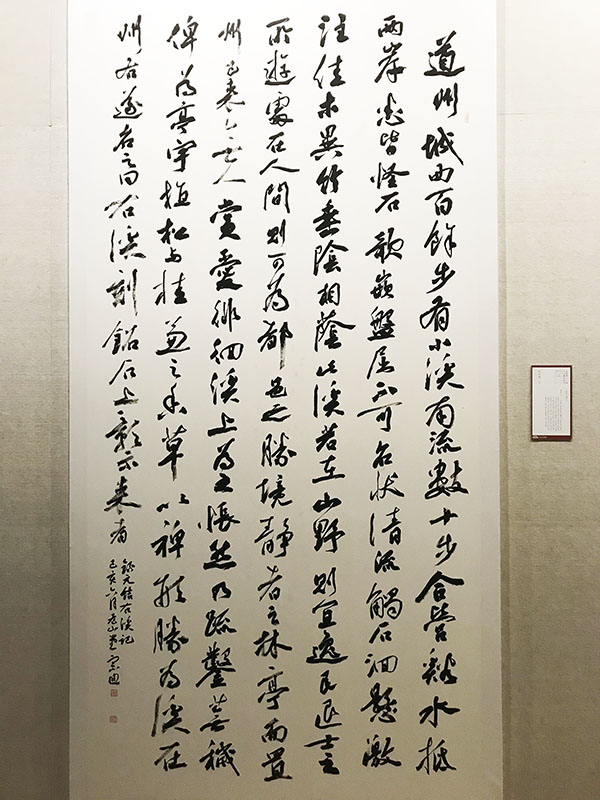 道州城西百餘步有小溪南流數十步合營谿水抵
兩岸悉皆怪石欹嵌盤屈不可名狀清流觸石洄懸激
注佳木異竹垂陰相蔭此溪若在山野則宜逸民退士之
所遊處在人間則可為都邑之勝境靜者之林亭而置
州已來無人賞愛徘徊溪上為之悵然乃疏鑿蕪穢
俾為亭宇植松與桂兼之香草以裨形勝為溪在
州右遂名之曰右溪刻銘石上彰示來者
錄元結右溪記
己亥六月